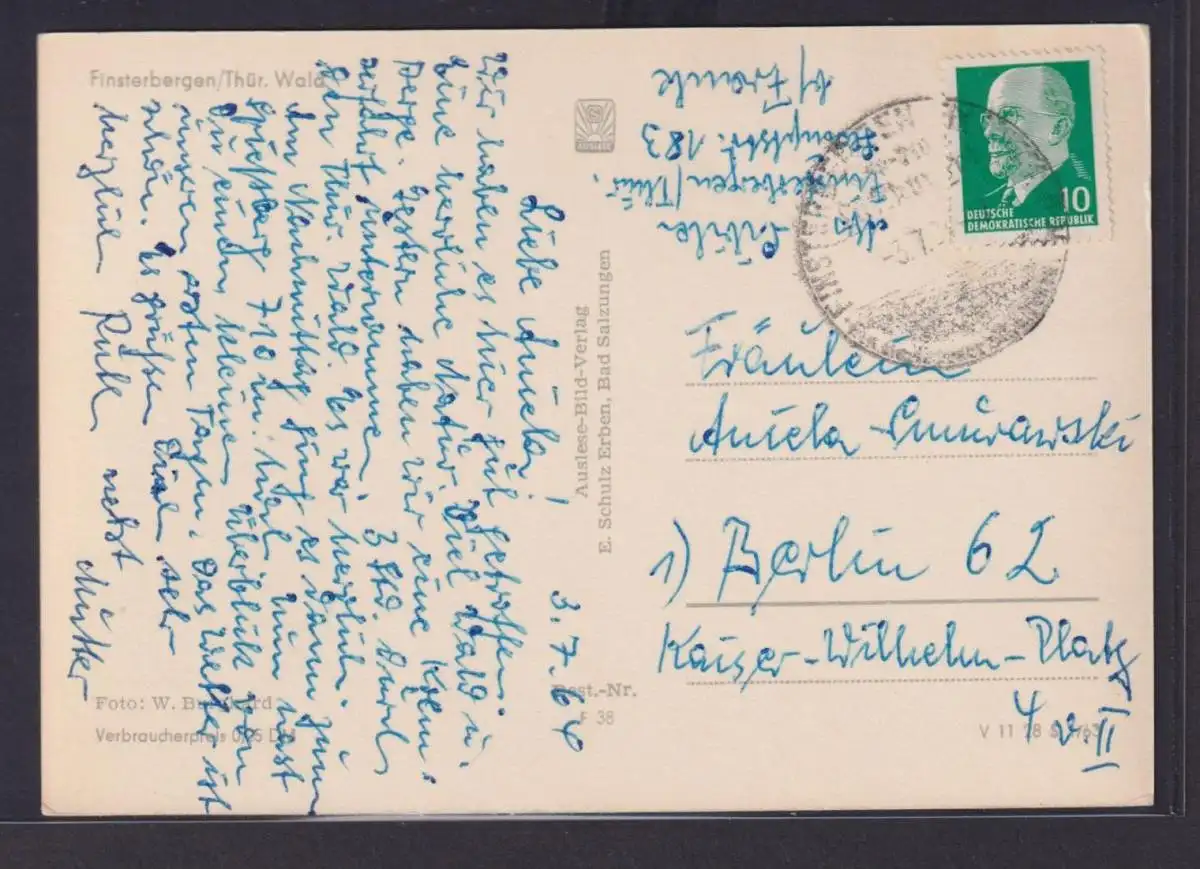 Finsterbergen/Thür. Wald
AUSLESE
3.7.64
Liebe Aniela!
Wir haben es hier gut getroffen.
Eine herrliche Natur. Viel Wald u.
Berge. Gestern haben wir eine Krem-
serfahrt unternommen. 3 Std. durch
den Thür. Wald. Es war herrlich.
Am Nachmittag ging es dann zum
Spießberg 710 m. hoch. Nun hast
Du einen kleinen Überblick von
unseren ersten Tagen. Das Wetter ist
schön. Es grüßen Dich sehr
herzlich Ruth nebst
Mutter
Foto: W. Burkhard
Verbraucherpreis 0,25 DM
Auslese-Bild-Verlag
E. Schulz Erben, Bad Salzungen
Best.-Nr.
F 38
V 11 28
Abs
Finsterbergen/Thür.
Hauptstr. 183
b/ Franke
FINSTERBERGEN
-3.7.
10
DEUTSCHE
DEMOKRATISCHE REPUBLIK
Fräulein
Aniela
1) Berlin 62
Kaiser-Wilhelm-Platz
4 v. II